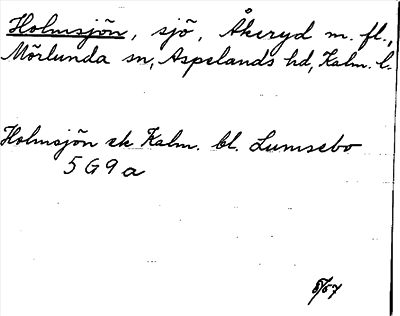 Holmsjön, sjö, Åkeryd m. fl.,
Mörlunda sn, Aspelands hd, Kalm. l.
Holmsjön ek Kalm. bl. Lumsebo
5G9a